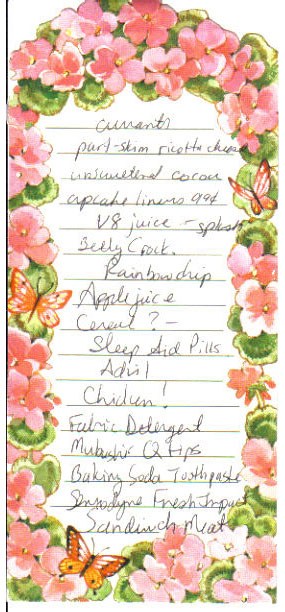 currants
part-skim ricotta cheese
unsweetened cocoa
cupcake liners 99¢
V8 juice - splash
Betty Crock.
Rainbow chip
Apple juice
Cereal ? -
Sleep Aid Pills
Advil
Chicken!
Fabric Detergent
Q tips
Baking Soda Toothpaste
Sensodyne Fresh Impact
Sandwich Meat